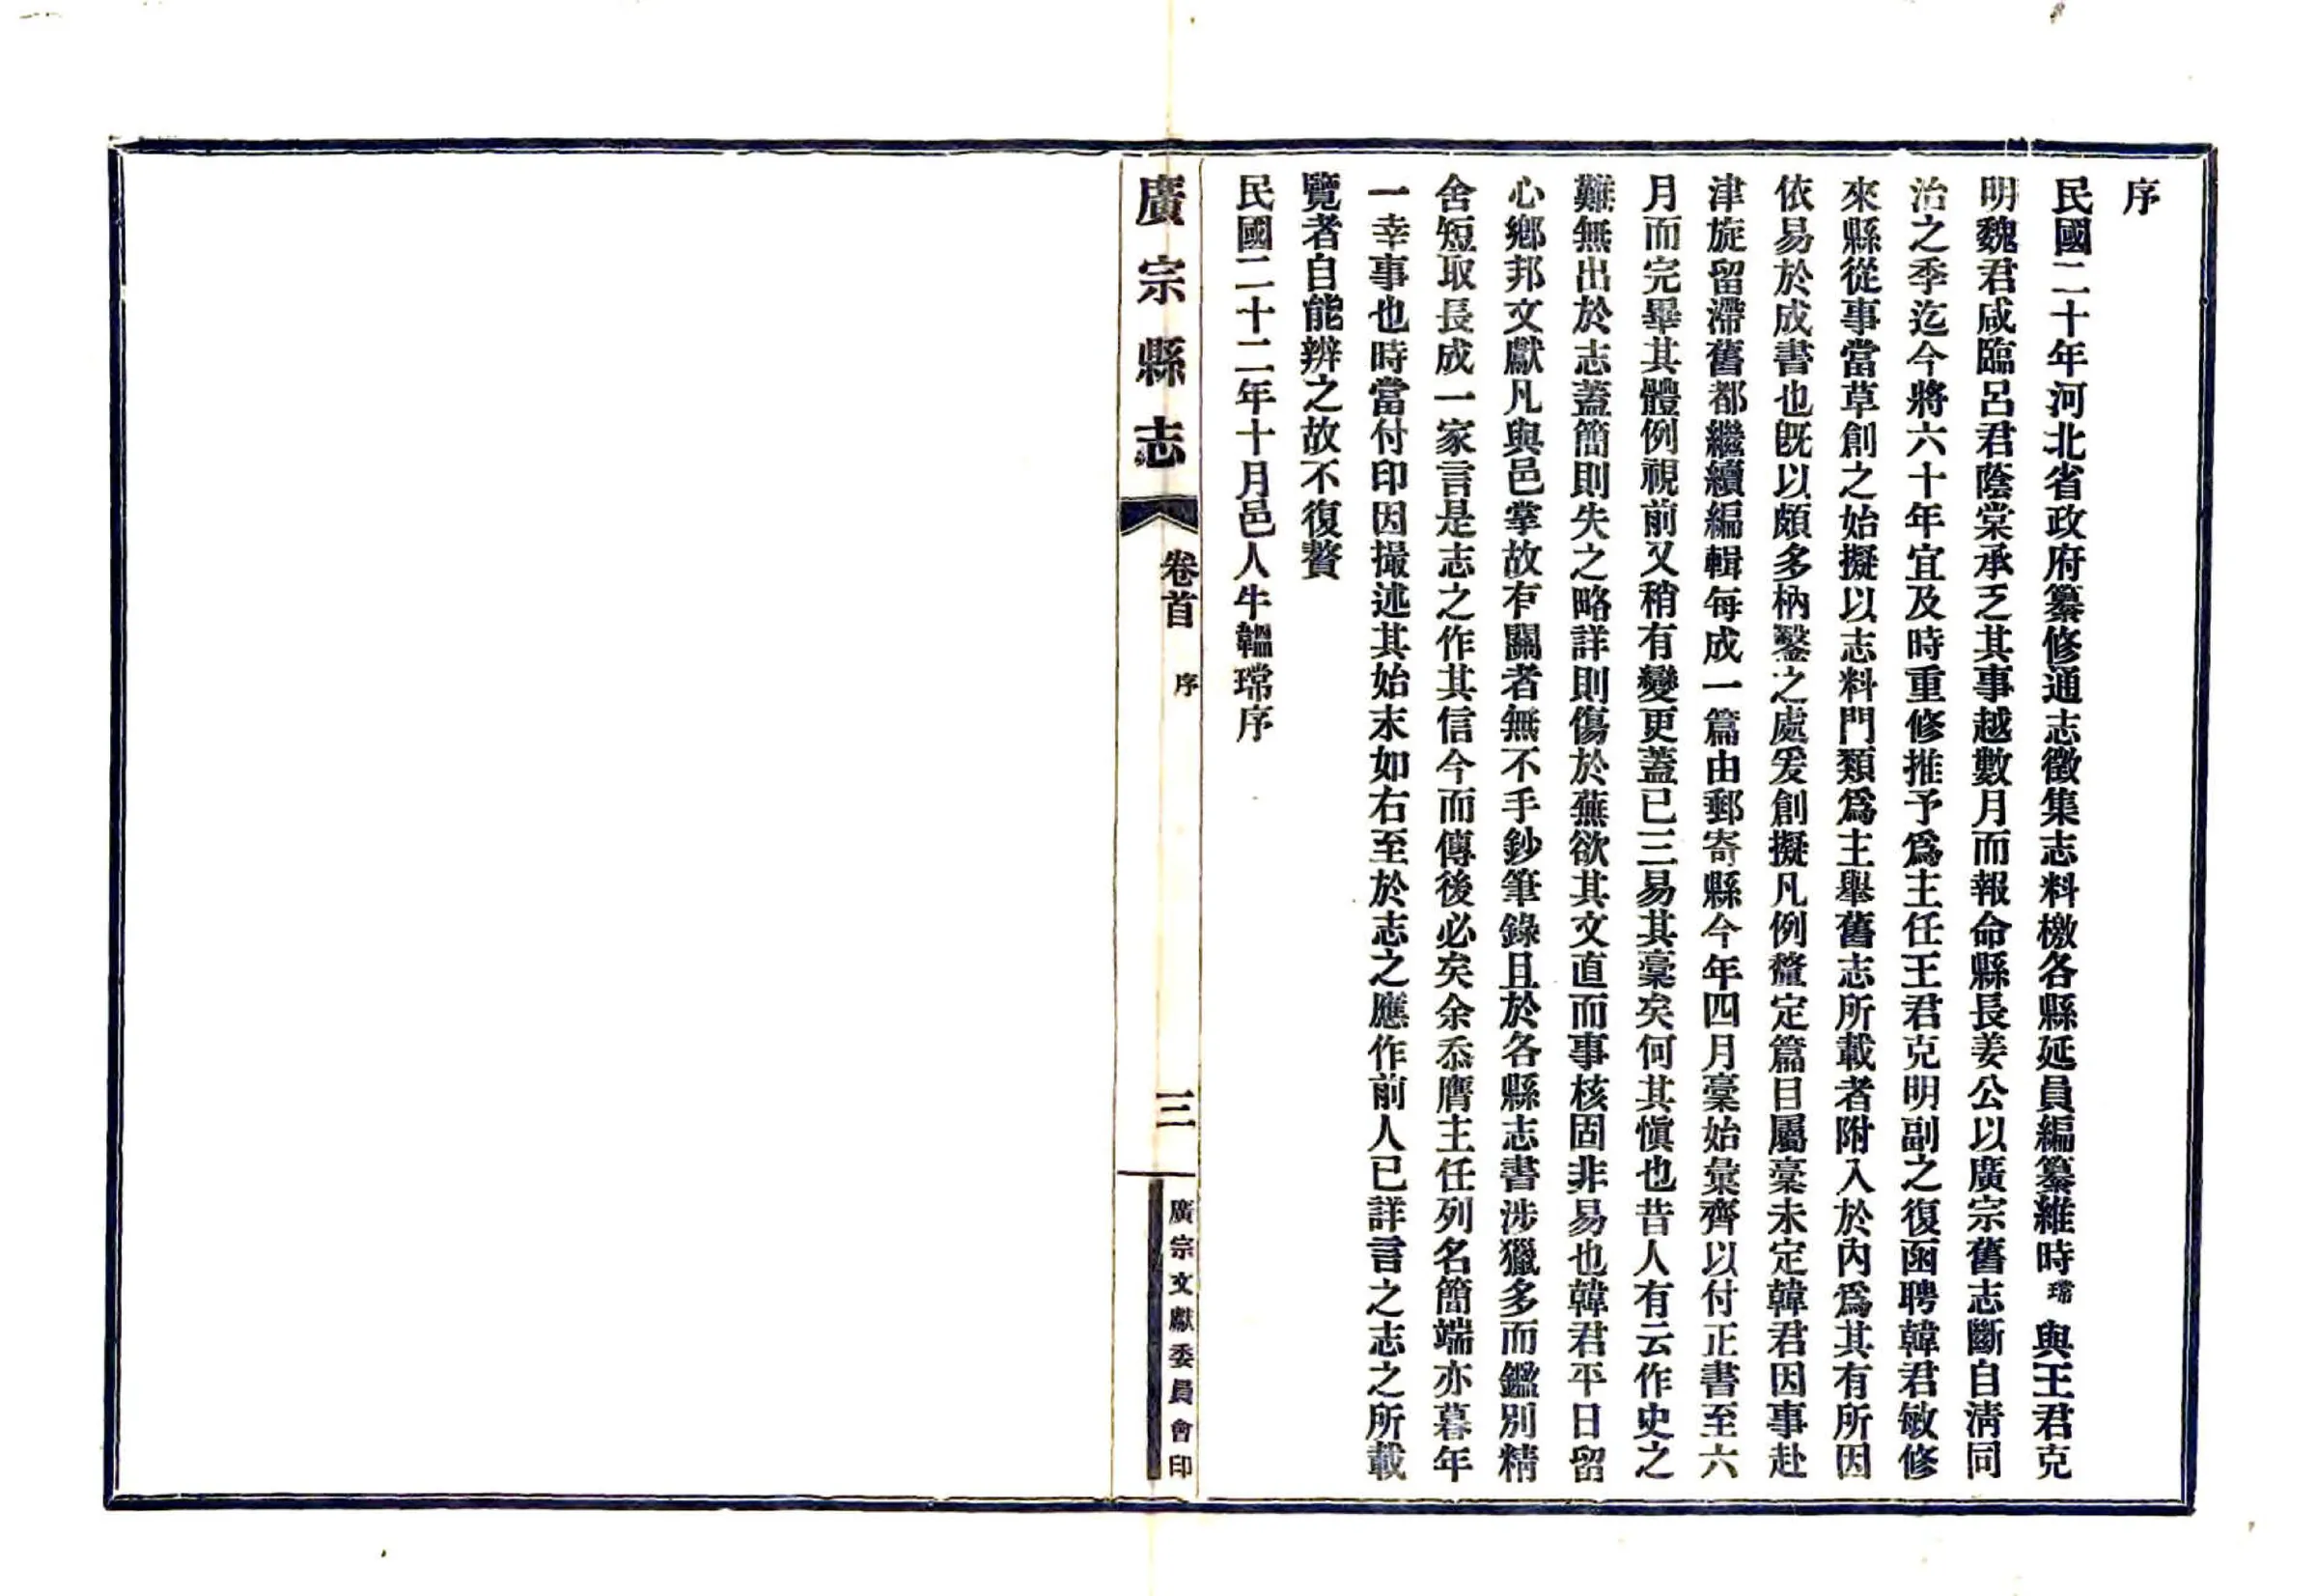 序
民國二十年河北省政府纂修通志徵集志料檄各縣延員編纂維時瑺與王君克
明魏君咸臨呂君蔭棠承乏其事越數月而報命縣長姜公以廣宗舊志斷自淸同
治之季迄今將六十年宜及時重修推予爲主任王君克明副之復函聘韓君敏修
來縣從事當草創之始擬以志料門類爲主舉舊志所載者附入於內爲其有所因
依易於成書也旣以頗多枘鑿之處爰創擬凡例釐定篇目屬稾未定韓君因事赴
津旋留滯舊都繼續編輯每成一篇由郵寄縣今年四月稾始彙齊以付正書至六
月而完畢其體例視前又稍有變更蓋已三易其稾矣何其愼也昔人有云作史之
難無出於志蓋簡則失之略詳則傷於蕪欲其文直而事核固非易也韓君平日留
心鄉邦文獻凡與邑掌故有關者無不手鈔筆錄且於各縣志書涉獵多而鑑別精
舍短取長成一家言是志之作其信今而傳後必矣余忝膺主任列名簡端亦暮年
一幸事也時當付印因撮述其始末如右至於志之應作前人已詳言之志之所載
覽者自能辨之故不復贅
民國二十二年十月邑人牛韞瑺序
廣宗縣志
卷首
序
三
廣宗文獻委員會印